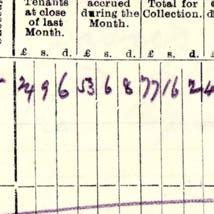 Tenants accrued Total for
at close during the Collection.
of last Month.
Month.
£ s. d. £ s. d. £ s. d.
24 9 6 53 6 8 77 16 2